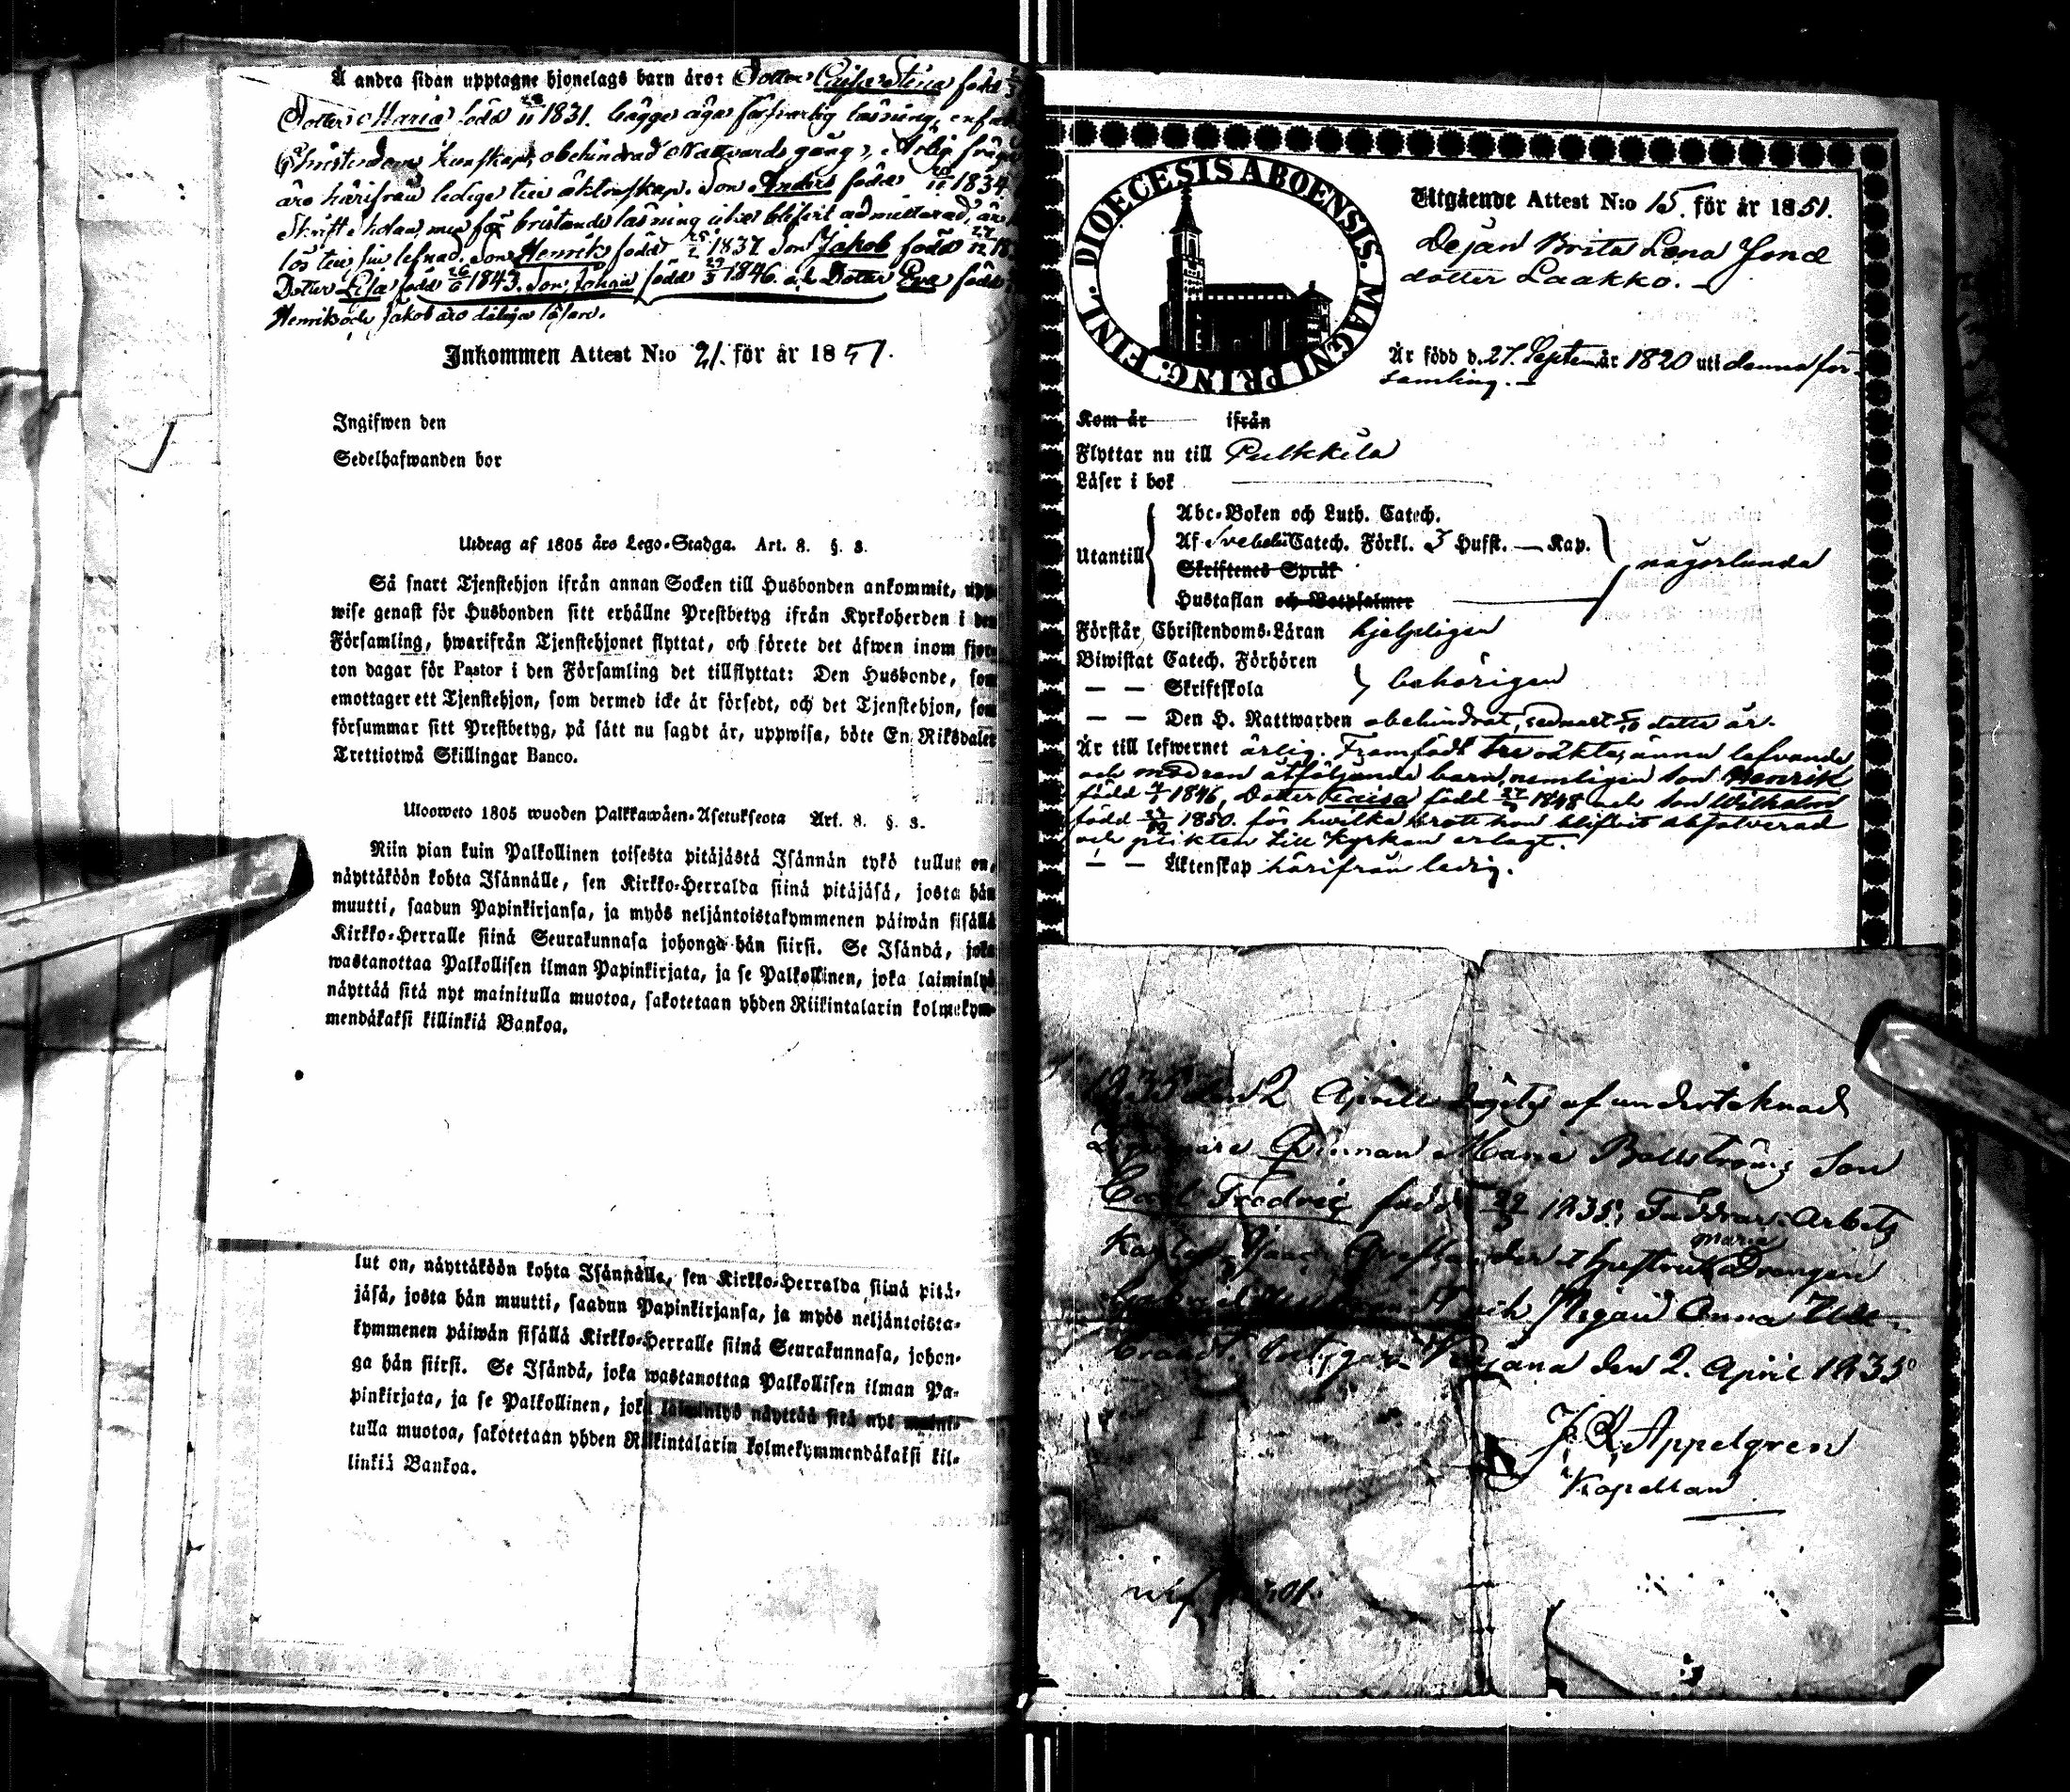 Å andra sidan upptagne hjonelags barn äro: Dotter Cajsa Stina född
Dotter Maria född 1831. bägge äga försvarlig läsning, enfal
Christendoms kunskap, obehindrad Nattvards gång, Ärlig frägd
äro härifrån ledige till äktenskap. Son Anders född 1834
Skriftskolan, men för bristande läsning icke blifvit admitterad, är
lös till sin lefnad. Son Henrik född 25/2 1837 Son Jakob född 27/12 18
Dotter Lisa född 26/6 1843. Son Johan född 29/3 1846. och Dotter Eva född
Henrik och Jakob äro dålige läsare.
Inkommen Attest N:o 21. för år 1851.
Ingifwen den
Sedelhafwanden bor
Utdrag af 1805 års Lego-Stadga. Art. 8. §. 3.
Så snart Tjenstehjon ifrån annan Socken till Husbonden ankommit, upp-
wise genast för Husbonden sitt erhållne Prestbetyg ifrån Kyrkoherden i den
Församling, hwarifrån Tjenstehjonet flyttat, och förete det äfwen inom fjor-
ton dagar för Pastor i den Församling det tillflyttat: Den Husbonde, som
emottager ett Tjenstehjon, som dermed icke är försedt, och det Tjenstehjon, som
försummar sitt Prestbetyg, på sätt nu sagdt är, uppwisa, böte En Riksdaler
Trettiotwå Skillingar Banco.
Ulosweto 1805 wuoden Palkkawäen-Asetuksesta Art. 8. §. 3.
Niin pian kuin Palkollinen toisesta pitäjästä Isännän tykö tullut on,
näyttäköön kohta Isännälle, sen Kirkko-Herralda siinä pitäjäsä, josta hän
muutti, saadun Papinkirjansa, ja myös neljäntoistakymmenen päiwän sisällä
Kirkko-Herralle siinä Seurakunnasa johonga hän siirsi. Se Isändä, joka
wastanottaa Palkollisen ilman Papinkirjata, ja se Palkollinen, joka laiminlyö
näyttää sitä nyt mainitulla muotoa, sakotetaan yhden Riikintalarin kolmekym-
mendäkaksi killinkiä Bankoa.
lut on, näyttäköön kohta Isännälle, sen Kirkko-Herralda siinä pitä-
jäsä, josta hän muutti, saadun Papinkirjansa, ja myös neljäntoista-
kymmenen päiwän sisällä Kirkko-Herralle siinä Seurakunnasa, johon-
ga hän siirsi. Se Isändä, joka wastanottaa Palkollisen ilman Pa-
pinkirjata, ja se Palkollinen, joka laiminlyö näyttää sitä nyt maini-
tulla muotoa, sakotetaan yhden Riikintalarin kolmekymmendäkaksi kil-
linkiä Bankoa.
DIOECESIS ABOENSIS. MAGNI PRINC. FINL.
Utgående Attest N:o 15. för år 1851.
Dejan Brita Lena Jons
dotter Laakko.
Är född d. 27. Septem år 1820 uti denna för-
samling.
Kom år ifrån
Flyttar nu till Pulkkila
Läser i bok
Utantill
Abc-Boken och Luth. Catech.
Af Svebelii Catech. Förkl. 3 Hufst. — Kap.
Skriftenes Språk
Hustaflan och Botpsalmer
någorlunda
Förstår Christendoms-Läran hjelpligen
Biwistat Catech. Förhören
— — Skriftskola
behörigen
— — Den H. Nattwarden obehindrat, sednast detta år.
Är till lefwernet ärlig. Framfödt tre oäkta, ännu lefvande
och modren åtföljande barn, nemligen Son Henrik
född 1846, Dotter Caisa född 1848 och Son Wilhelm
född 1850. för hwilka brott hon blifvit absolverad
och plikten till Kyrkan erlagt.
— — Äktenskap härifrån ledig.
1835 den 2 Aprill döptes af undertecknad
Qvinnan Maria Bollströms Son
Carl Fredric född 29/3 1835; Faddrar: Arbets
Karlen Isaac och hustru Maria Drengen
och Pigan Anna
Kajana den 2. April 1835
J. R. Appelgren
Kapellan